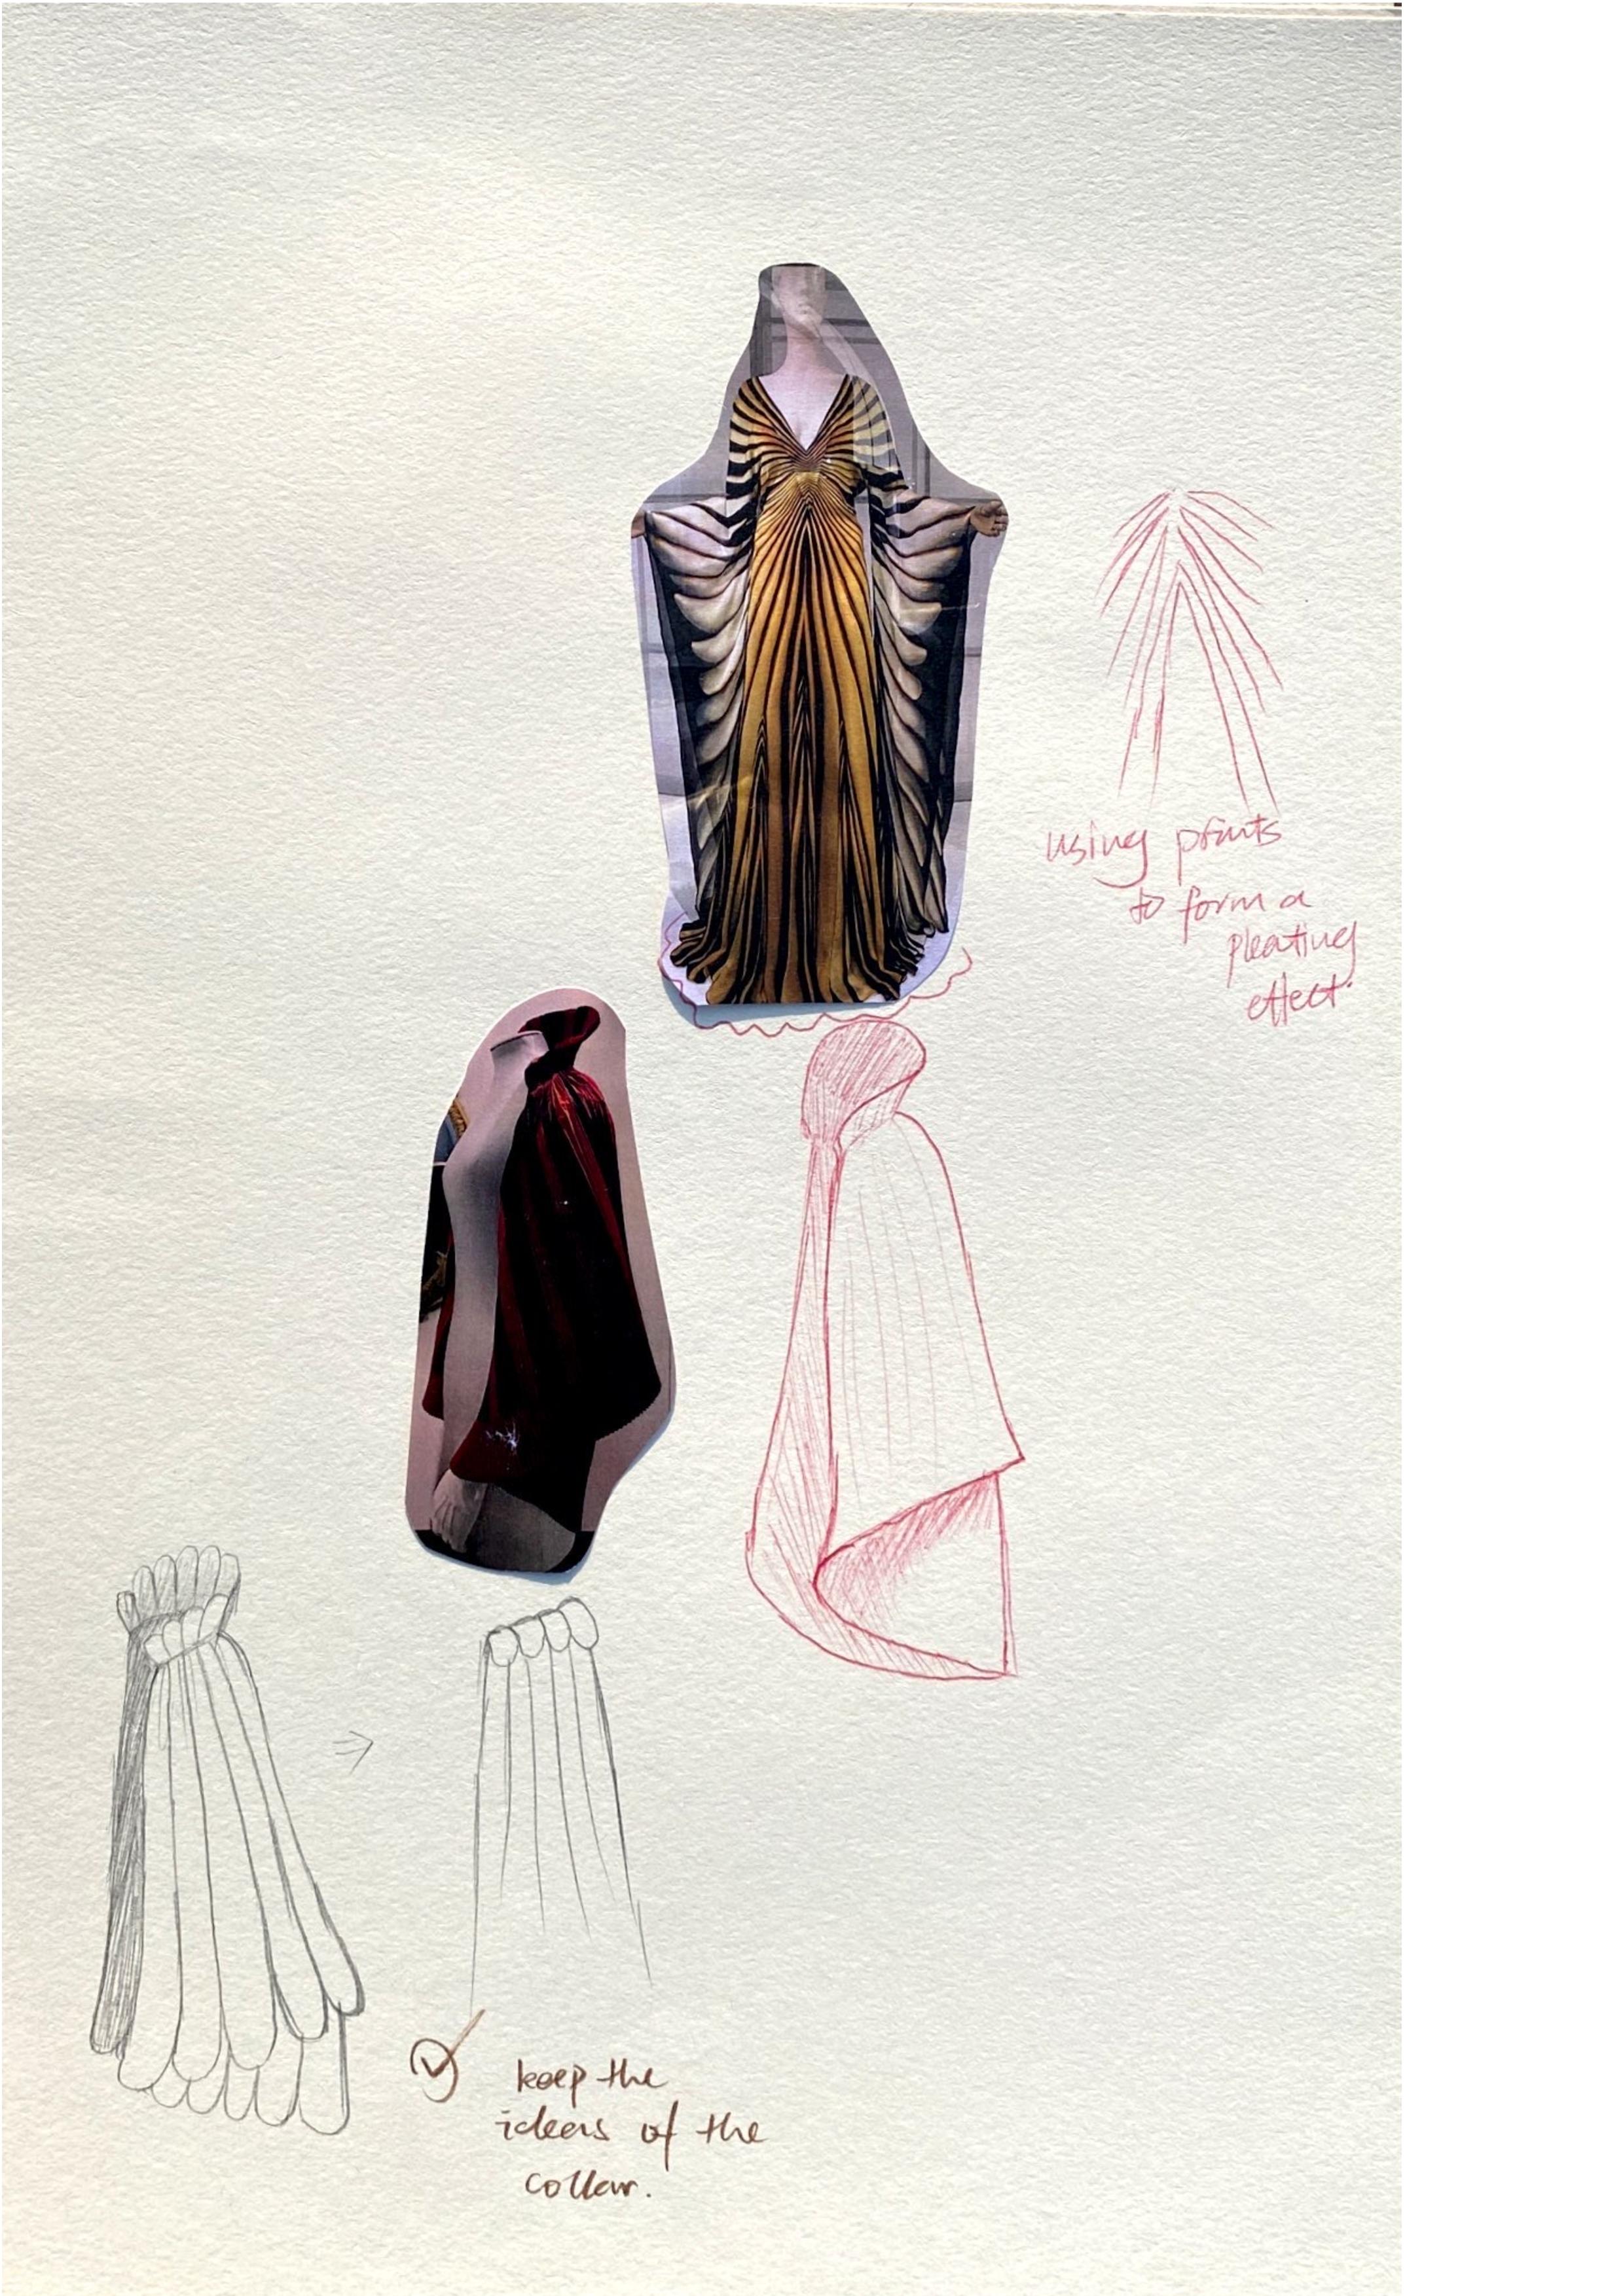 using prints
to form a
pleating
effect.
keep the
ideas of the
collar.